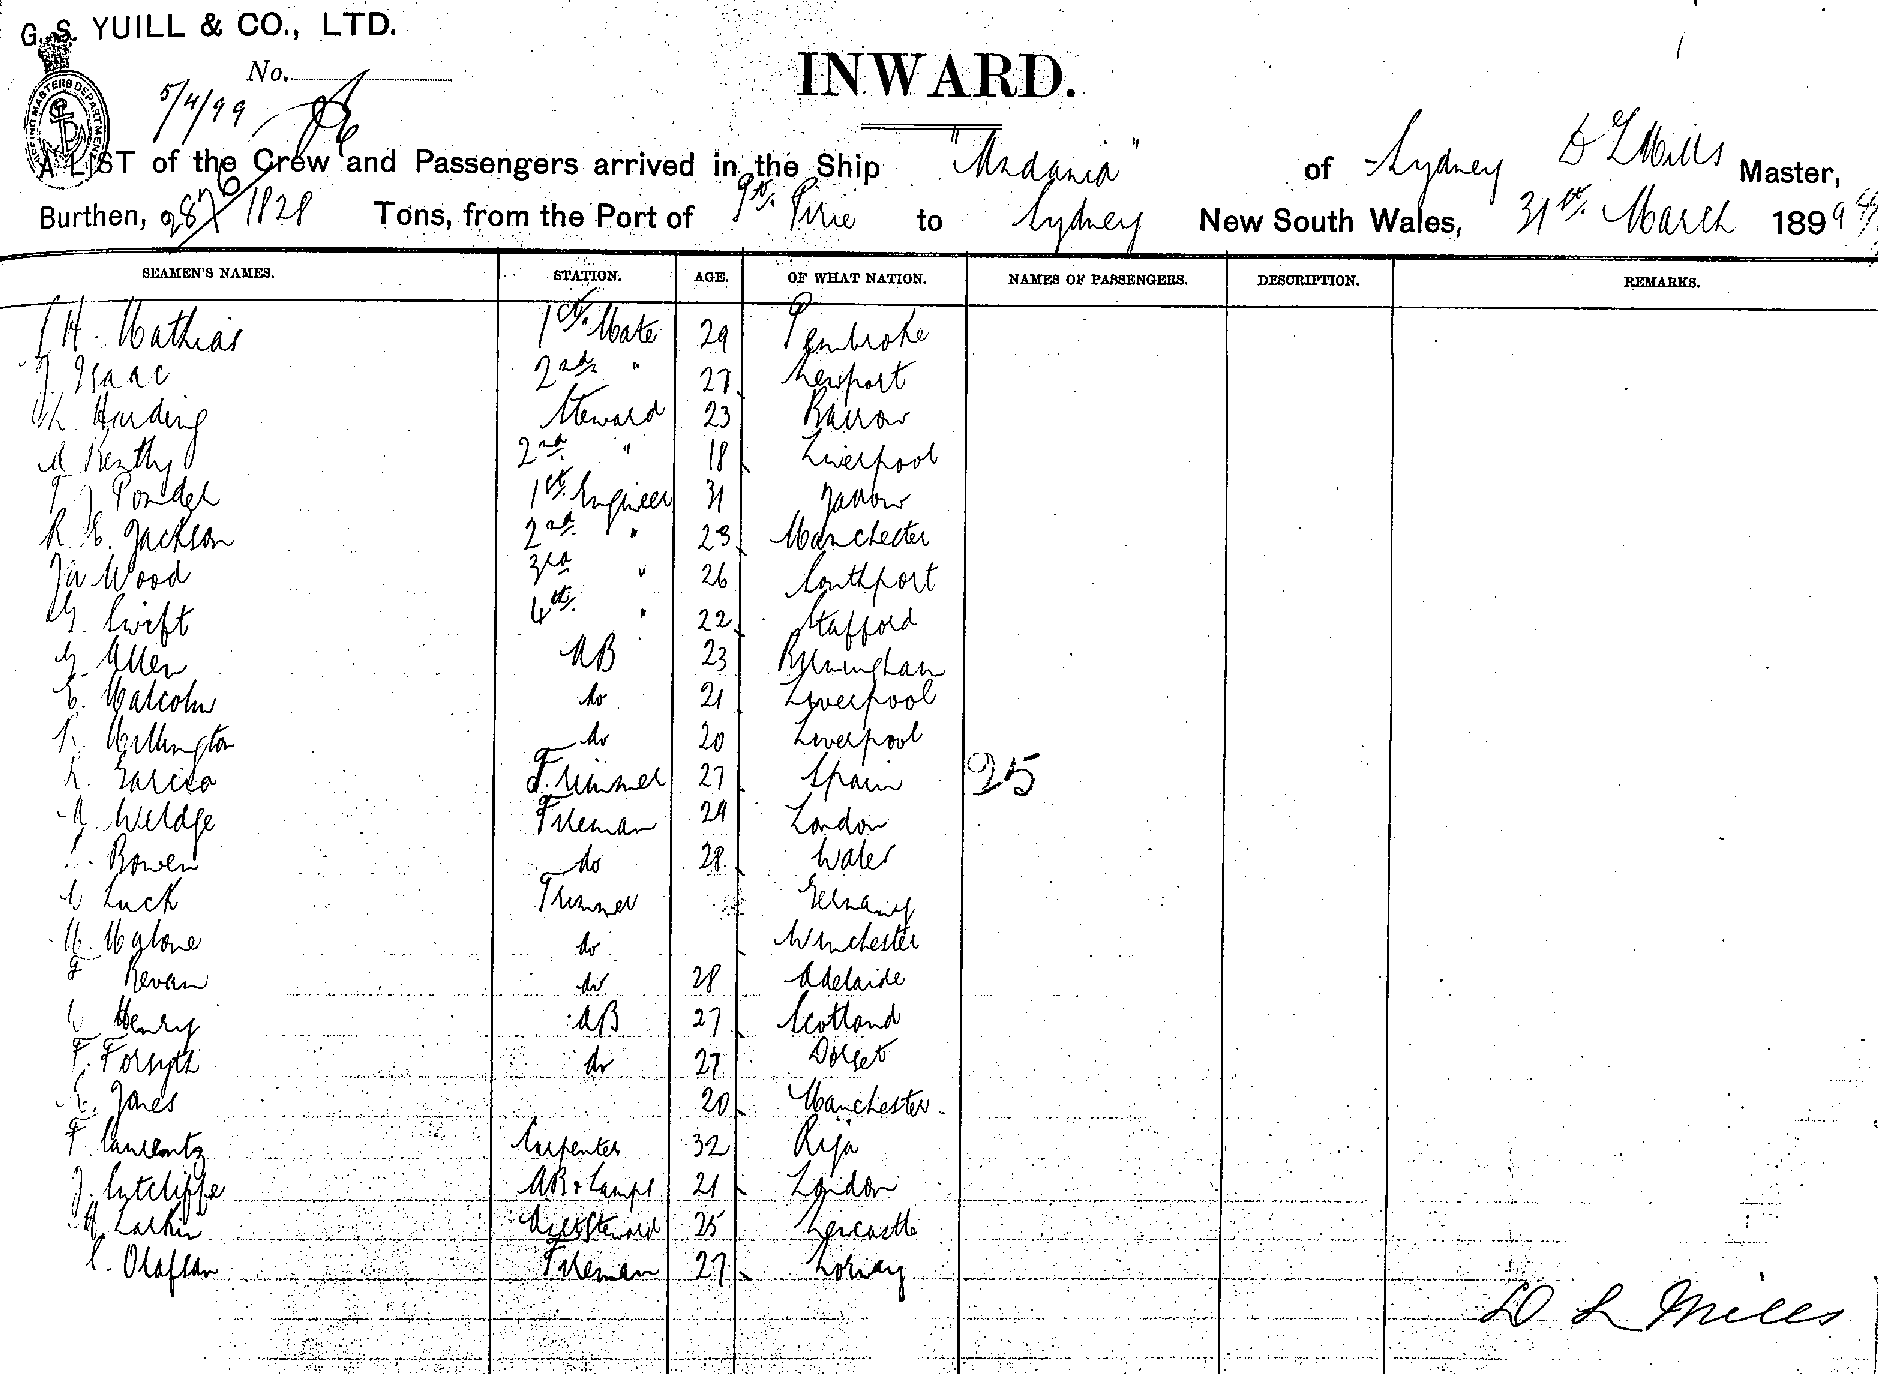 G. S. YUILL & CO., LTD.
No.
INWARD.
5/4/99
A LIST of the Crew and Passengers arrived in the Ship " " of Sydney D L Mills Master,
Burthen, 2876 1828 Tons, from the Port of Pt. Pirie to Sydney New South Wales, 31st. March 1899
SEAMEN'S NAMES. STATION. AGE. OF WHAT NATION. NAMES OF PASSENGERS. DESCRIPTION. REMARKS.
H. Mathias 1st. Mate 29 Pembroke
J. Isaac 2nd " 27 Newport
Harding Steward 23 Barrow
2nd " 18 Liverpool
T J 1st Engineer 31 Jarrow
R. E. Jackson 2nd " 23 Manchester
Wood 3rd " 26 Southport
G. Swift 4th. " 22 Stafford
G. Allen AB 23 Birmingham
E. Malcolm do 21 Liverpool
Millington do 20 Liverpool
Trimmer 27 Spain 25
Fireman 29 London
Bowen do 28 Wales
Luck Trimmer Germany
do Winchester
Bevan do 28 Adelaide
Henry AB 27 Scotland
F. Forsyth do 27 Dorset
Jones 20 Manchester
F. Carpenter 32 Riga
J. Sutcliffe AB & Lamps 21 London
Larkin Asst Steward 25 Newcastle
Olafsan Fireman 27 Norway
D L Mills